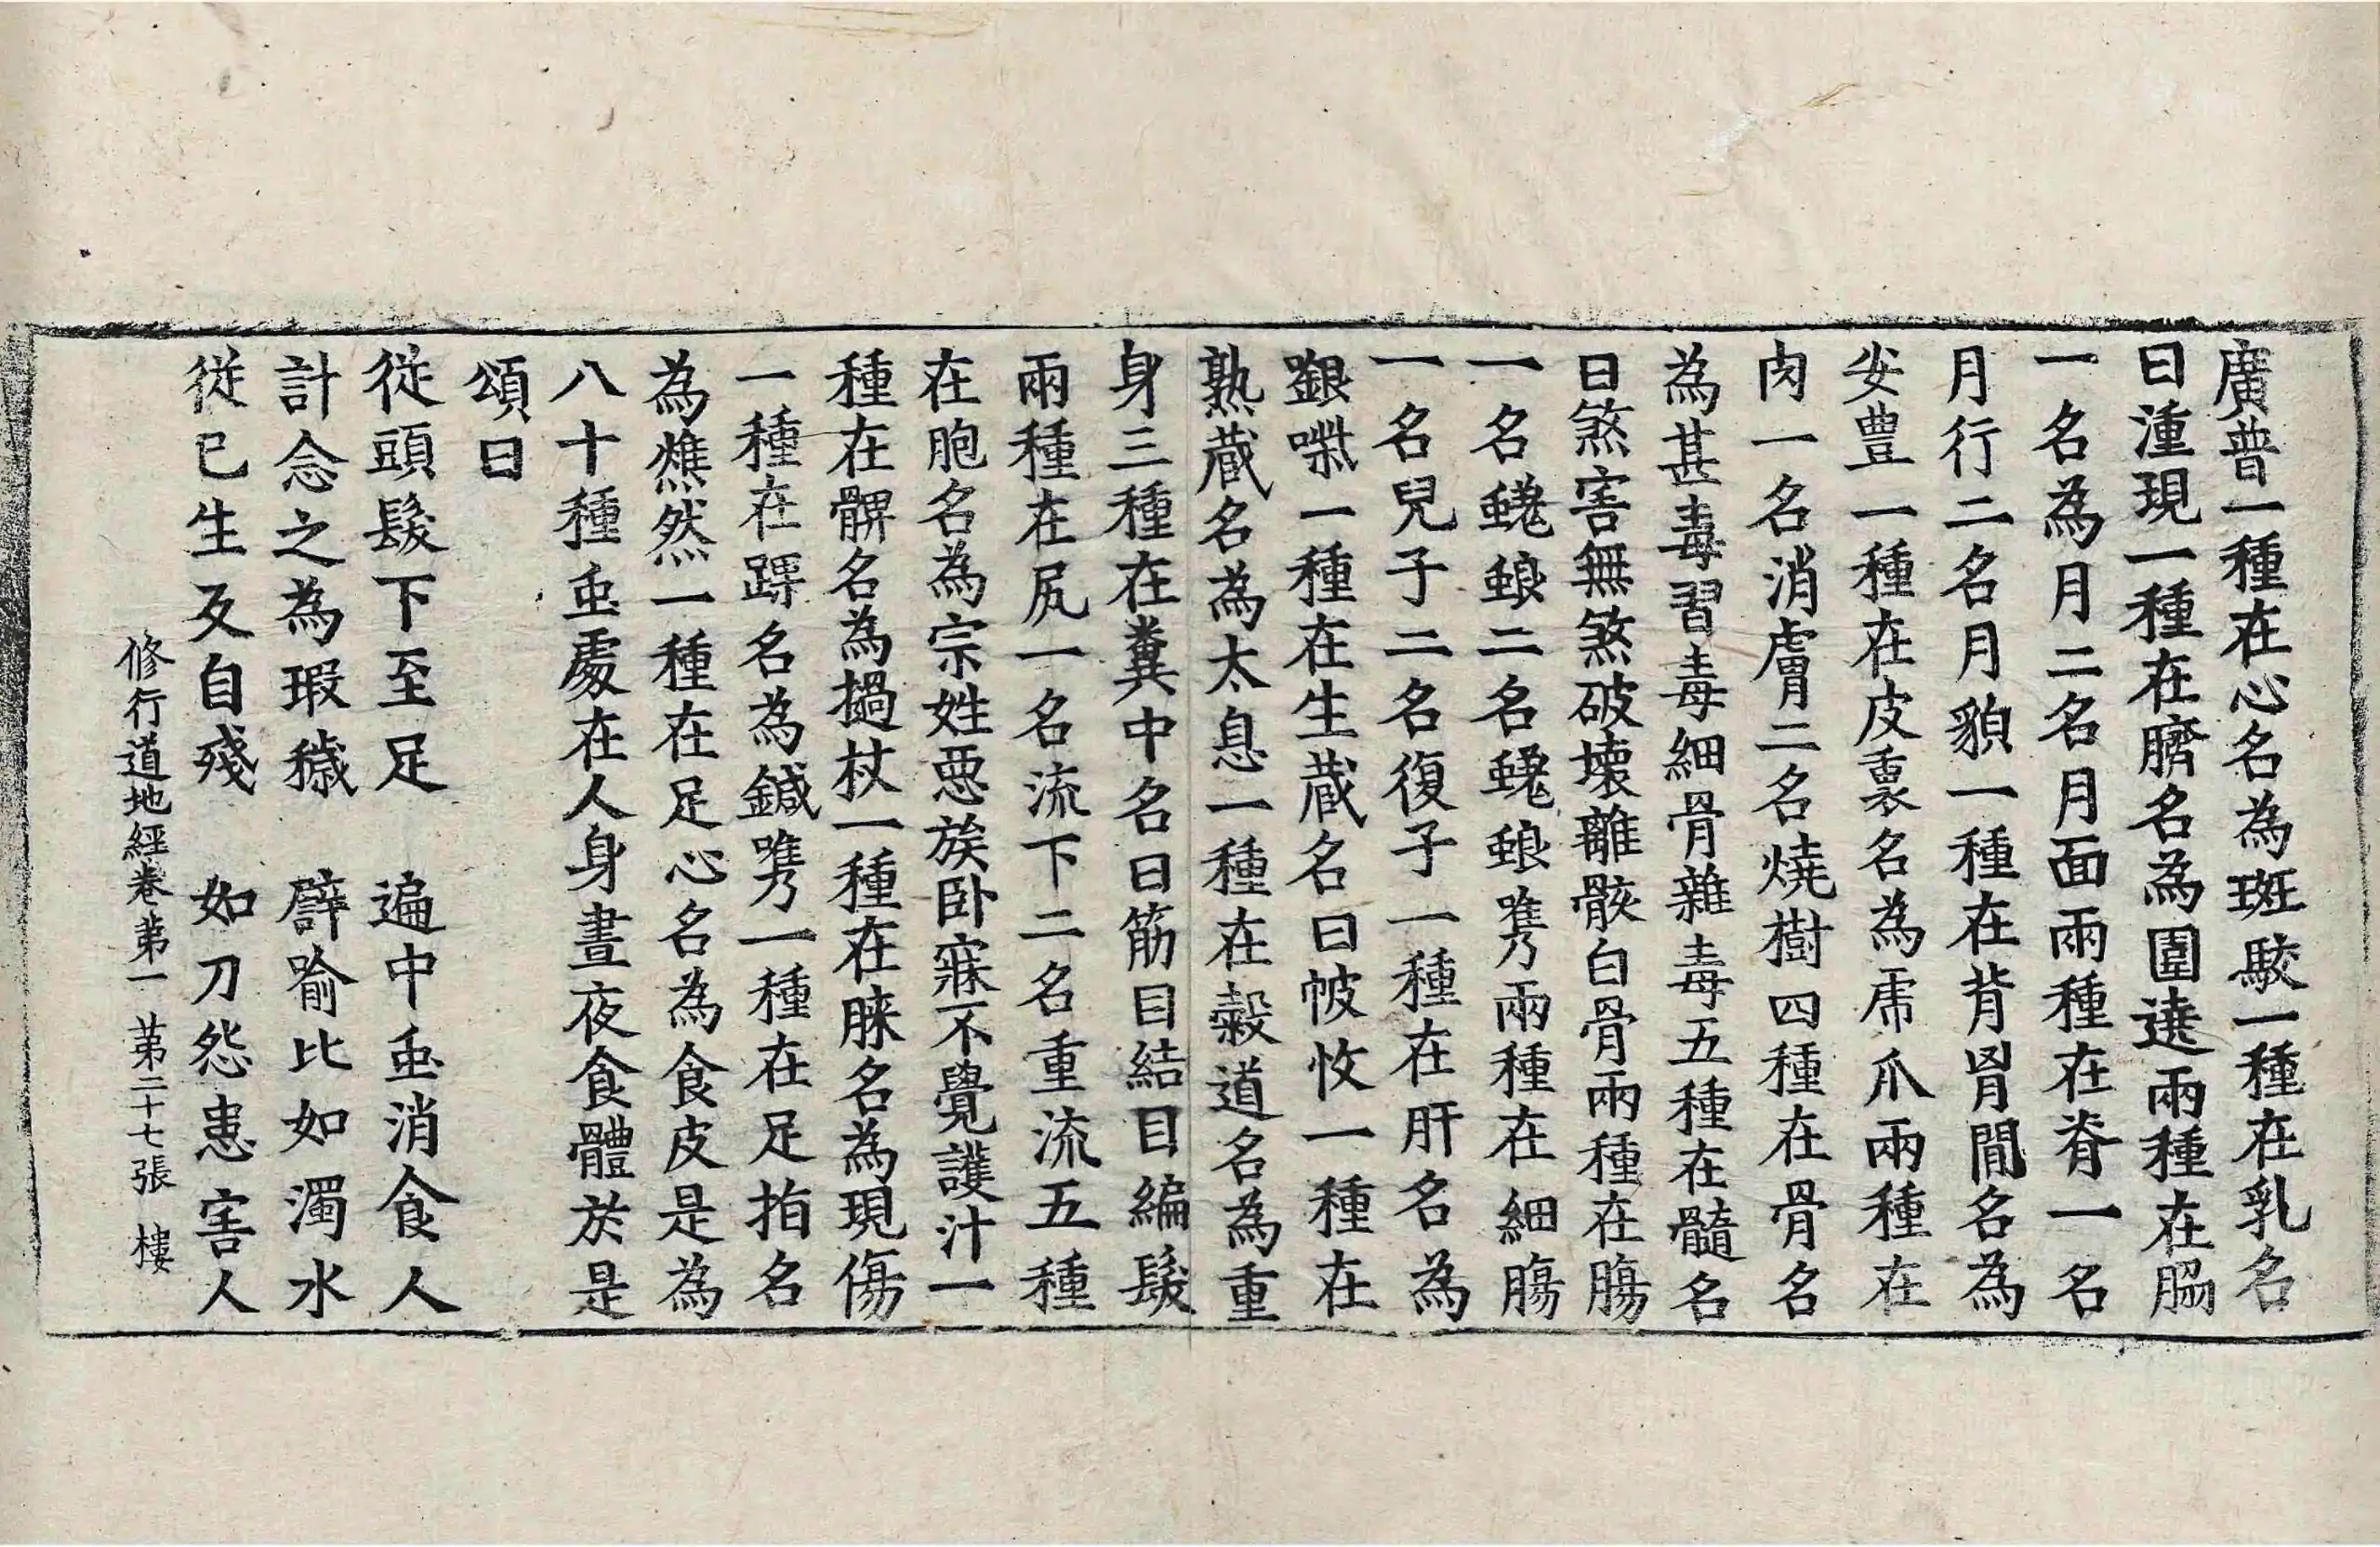 廣普一種在心名為斑駮一種在乳名
曰湩現一種在臍名為圍遶兩種在脇
一名為月二名月面兩種在脊一名
月行二名月貌一種在背胷閒名為
安豊一種在皮裏名為虎爪兩種在
肉一名消膚二名燒樹四種在骨名
為甚毒習毒細骨雜毒五種在髓名
曰煞害無煞破壞離骸白骨兩種在膓
一名蜣蜋二名蜣蜋嶲兩種在細膓
一名兒子二名復子一種在肝名為
噤一種在生蔵名曰帔忟一種在
熟蔵名為太息一種在糓道名為重
身三種在糞中名曰筋目結目編髮
兩種在尻一名流下二名重流五種
在胞名為宗姓惡族卧寐不覺護汁一
種在髀名為撾杖一種在膝名為現傷
一種在踝名為鍼嶲一種在足指名
為燋然一種在足心名為食皮是為
八十種䖝處在人身晝夜食體於是
頌曰
從頭髮下至足　遍中䖝消食人
計念之為瑕穢　譬喻比如濁水
從已生反自殘　如刀怨患害人
修行道地經卷第一　第二十七張　樓